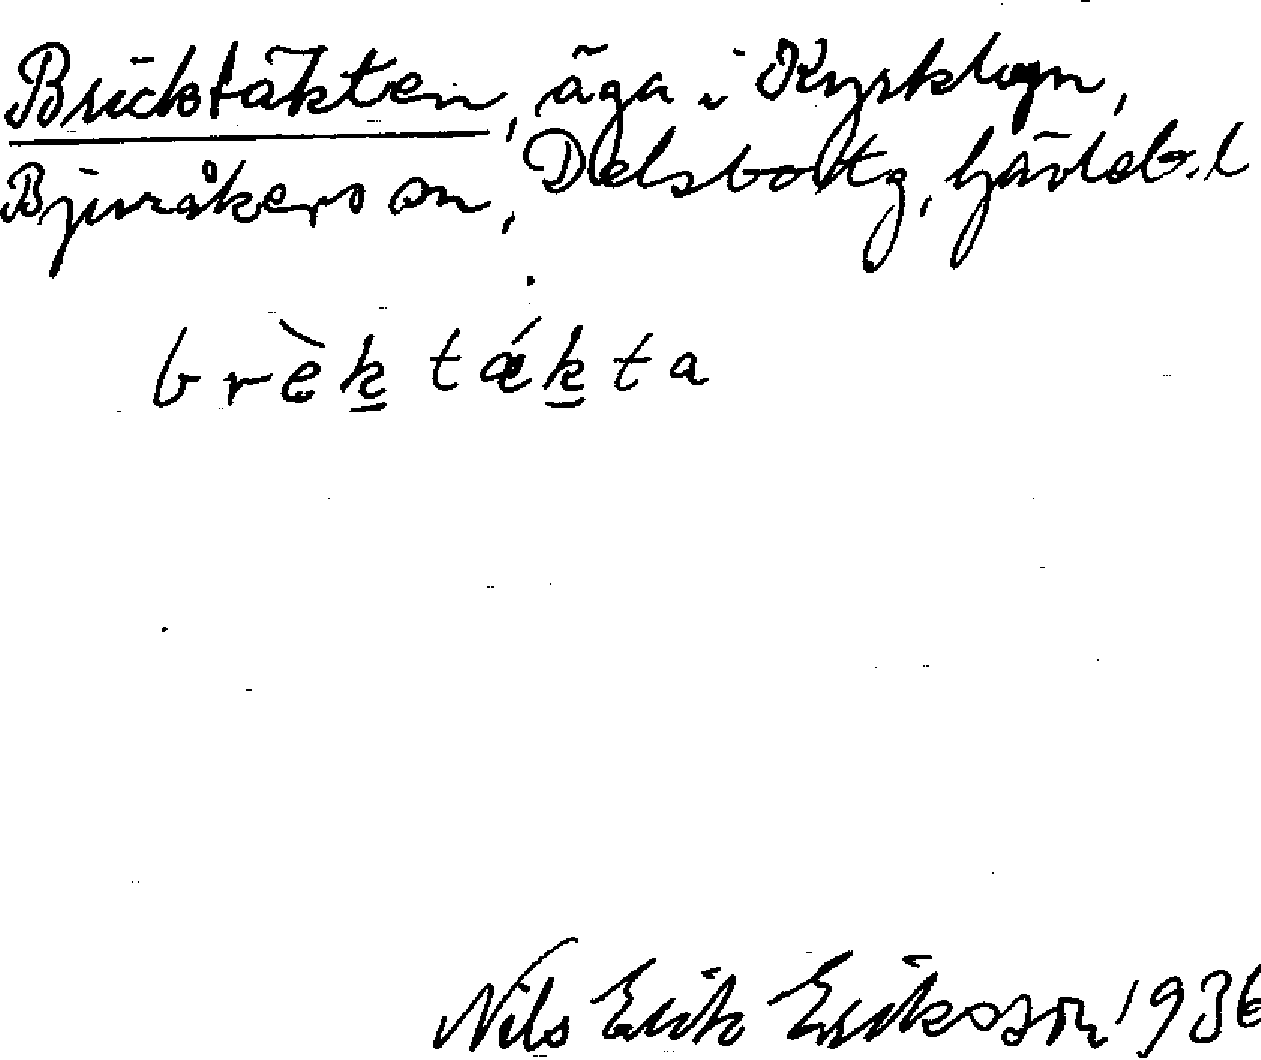 Bricktäkten, äga i Kyrkbyn,
Bjuråkers sn, Delsbo tg, Gävleb. l
brèk tǽkta
Nils Erik Eriksson 1936